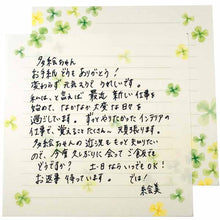 多絵ちゃん
お手紙どうもありがとう！
変わらず元気そうでうれしいです。
私は、と言えば 最近 新しい仕事を
始めて、なかなか大変な日々を
過ごしてます。ずっとやりたかったインテリアの
仕事で、覚えることたくさん… 頑張ります。
多絵ちゃんの近況ももっと知りたい
ので、今度久しぶりに会って ご飯でも
どうですか？ 土・日ならいつでもOK！
お返事待っています。 では！
絵美